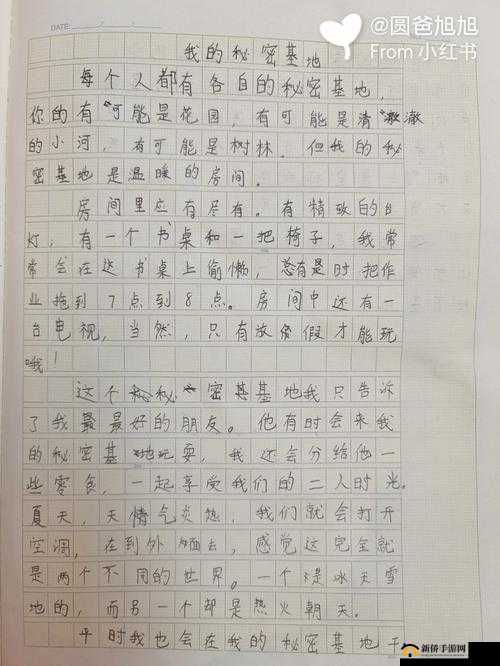 DATE:
@圆爸旭旭
From 小红书
我的秘密基地
每个人都有各自的秘密基地,
你的有可能是花园,有可能是清澈
的小河,有可能是树林.但我的秘
密基地是温暖的房间.
房间里应有尽有.有精致的台
灯,有一个书桌和一把椅子,我常
常会在这书桌上偷懒,总有是时把作
业拖到7点到8点.房间中还有一
台电视,当然,只有放假才能玩
哦!
这个秘密基地我只告诉
了我最最好的朋友.他有时会来我
的秘密基地玩耍,我还会分给他一
些零食,一起享受我们的二人时光.
夏天,天情气炎热,我们就会打开
空调,在到外面去,感觉这完全就
是两个不同的世界.一个是冰天雪
地的,而另一个却是热火朝天.
平时我也会在我的秘密基地干
新侨手游网